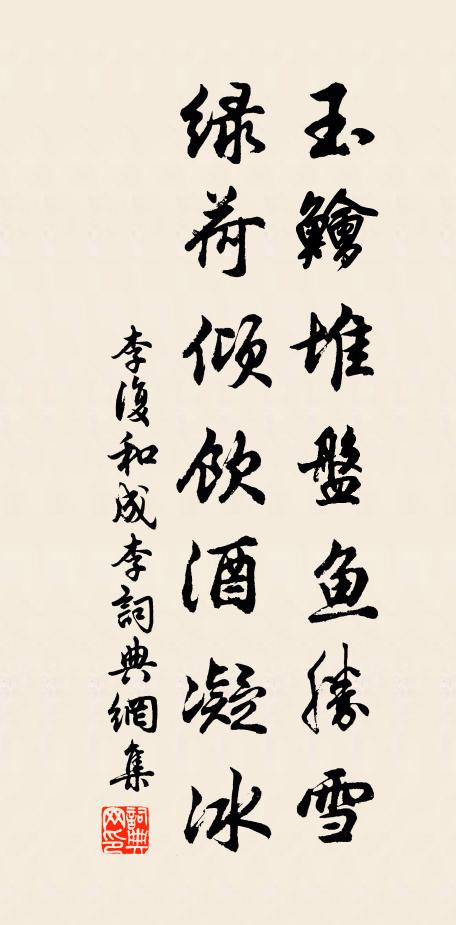 玉鱠堆盤鱼勝雪
緑荷倾飲酒凝冰
李復和成李詞典網集
詞典网印